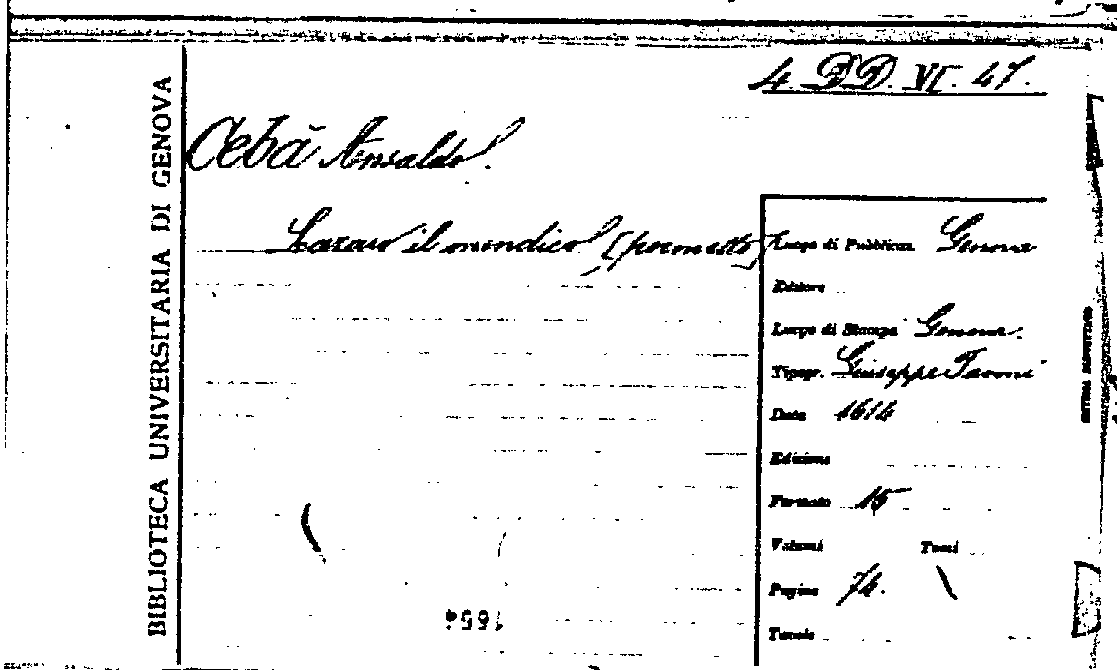 4. DD. VI. 47.
BIBLIOTECA UNIVERSITARIA DI GENOVA
Cebà Ansaldo.
Lazaro il mendico [poemetto]
Luogo di Pubblicaz. Genova
Editore
Luogo di Stampa Genova.
Tipogr. Giuseppe Pavoni
Data 1614
Edizione
Formato 15
Volumi Tomi
Pagine 74.
Tavole
1654